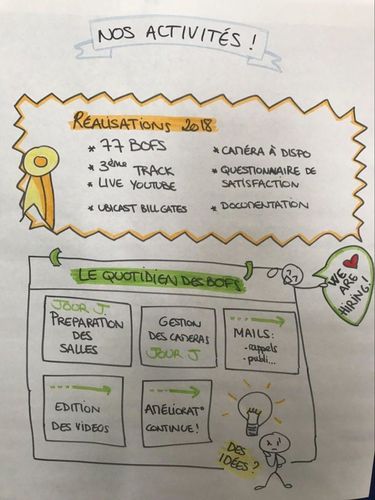 NOS ACTIVITÉS !
RÉALISATIONS 2018
* 77 BOFS
* 3ème TRACK
* LIVE YOUTUBE
* UBICAST BILL GATES
* CAMÉRA À DISPO
* QUESTIONNAIRE DE
SATISFACTION
* DOCUMENTATION
LE QUOTIDIEN DES BOFS
WE ♥
ARE
HIRING!
JOUR J
PREPARATION
DES
SALLES
GESTION
DES CAMERAS
JOUR J
MAILS:
-rappels
-publi...
EDITION
DES VIDEOS
AMÉLIORAT°
CONTINUE!
DES
IDÉES?